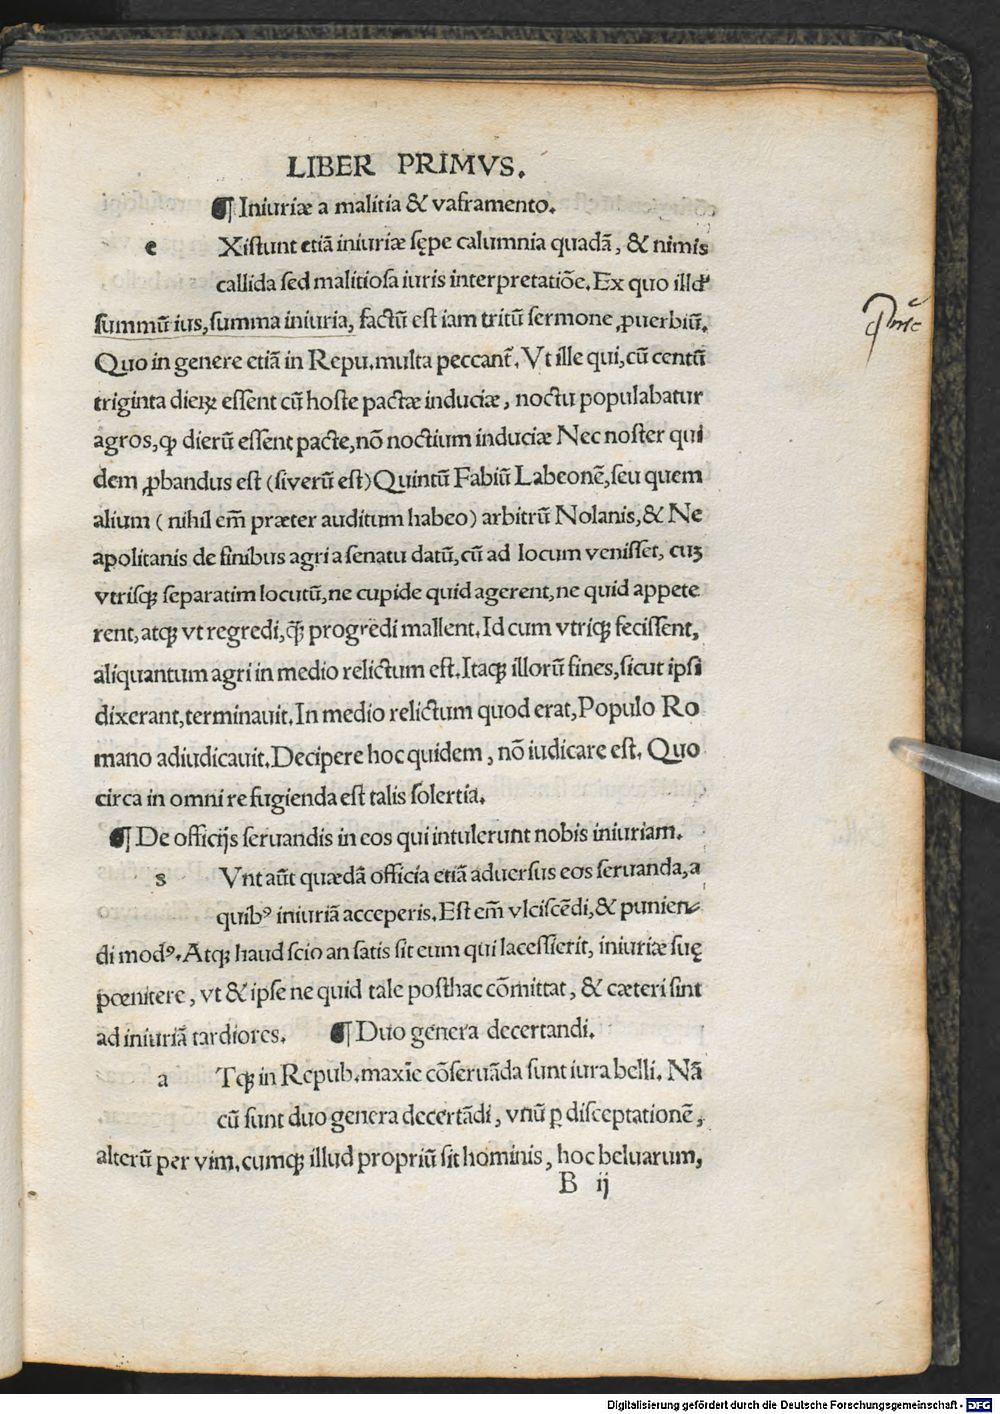 LIBER PRIMVS.
¶ Iniuriæ a malitia & vaframento.
e Xistunt etiā iniuriæ sępe calumnia quadā, & nimis
callida sed malitiosa iuris interpretatiōe. Ex quo illđ
summū ius, summa iniuria, factū est iam tritū sermone ꝓuerbiū.
Quo in genere etiā in Repu. multa peccant̄. Vt ille qui, cū centū
triginta dieꝝ essent cū hoste pactæ induciæ, noctu populabatur
agros, ꝙ dierū essent pacte, nō noctium induciæ Nec noster qui
dem ꝓbandus est (si verū est) Quintū Fabiū Labeonē, seu quem
alium ( nihil em̄ præter auditum habeo) arbitrū Nolanis, & Ne
apolitanis de finibus agri a senatu datū, cū ad locum venisset, cuꝫ
vtrisqꝫ separatim locutū, ne cupide quid agerent, ne quid appete
rent, atqꝫ vt regredi, q̄ꝫ progredi mallent. Id cum vtriqꝫ fecissent,
aliquantum agri in medio relictum est. Itaqꝫ illorū fines, sicut ipsi
dixerant, terminauit. In medio relictum quod erat, Populo Ro
mano adiudicauit. Decipere hoc quidem, nō iudicare est. Quo
circa in omni re fugienda est talis solertia.
¶ De officijs seruandis in eos qui intulerunt nobis iniuriam.
s Vnt aūt quædā officia etiā aduersus eos seruanda, a
quibꝰ iniuriā acceperis. Est em̄ vlciscēdi, & punien-
di modꝰ. Atqꝫ haud scio an satis sit eum qui lacessierit, iniuriæ suę
pœnitere, vt & ipse ne quid tale posthac cōmittat, & cæteri sint
ad iniuriā tardiores. ¶ Duo genera decertandi.
a Tqꝫ in Repub. maxīe cōseruāda sunt iura belli. Nā
cū sunt duo genera decertādi, vnū ꝑ disceptationē,
alterū per vim. cumqꝫ illud propriū sit hominis, hoc beluarum,
B ij
Digitalisierung gefördert durch die Deutsche Forschungsgemeinschaft - DFG